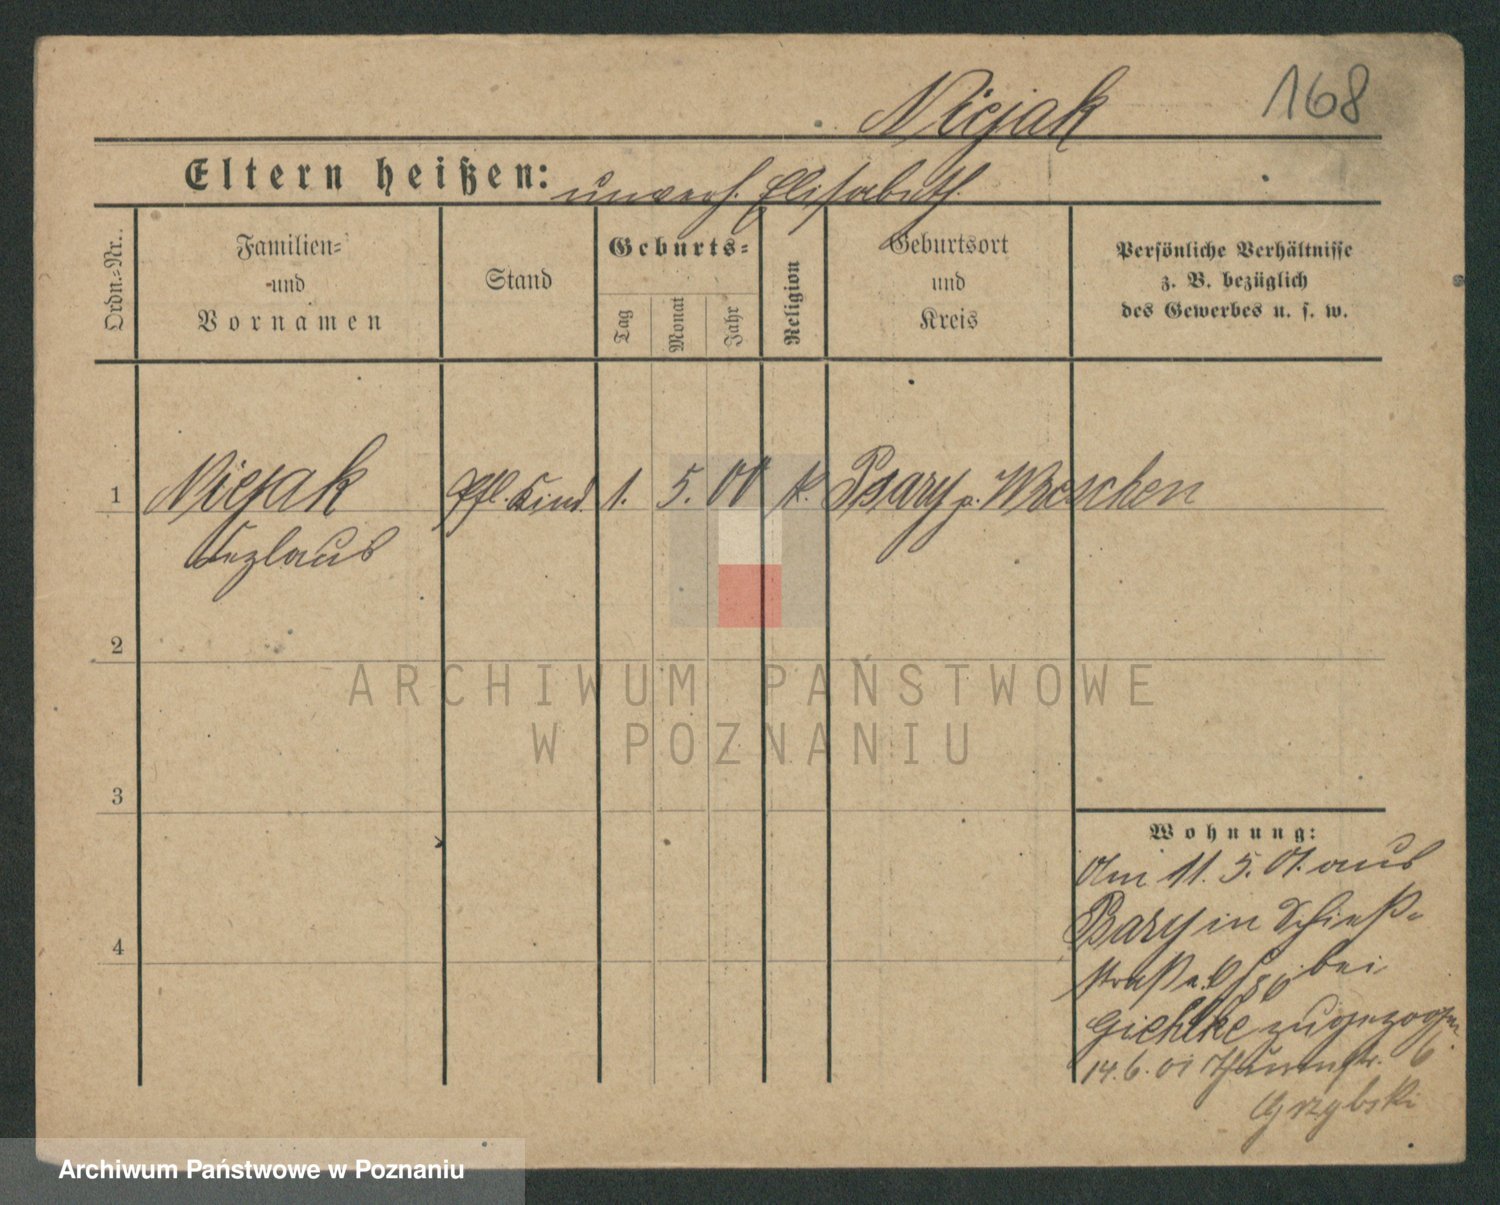 Niejak
168
Eltern heißen: unverh. Elisabeth
Ordn.-Nr.
Familien-
und
Vornamen
Stand
Geburts-
Tag
Monat
Jahr
Religion
Geburtsort
und
Kreis
Persönliche Verhältnisse
z. B. bezüglich
des Gewerbes u. s. w.
1 Niejak Pfl. Kind. 1. 5. 00 k. Psary Wreschen
Wezlaus
2
3
4
Wohnung:
Am 11. 5. 01. aus
Psary in Schieß-
straße bei
Giehlke zugezogen
14. 6. 01 6
Grzybski
ARCHIWUM PAŃSTWOWE
W POZNANIU
Archiwum Państwowe w Poznaniu